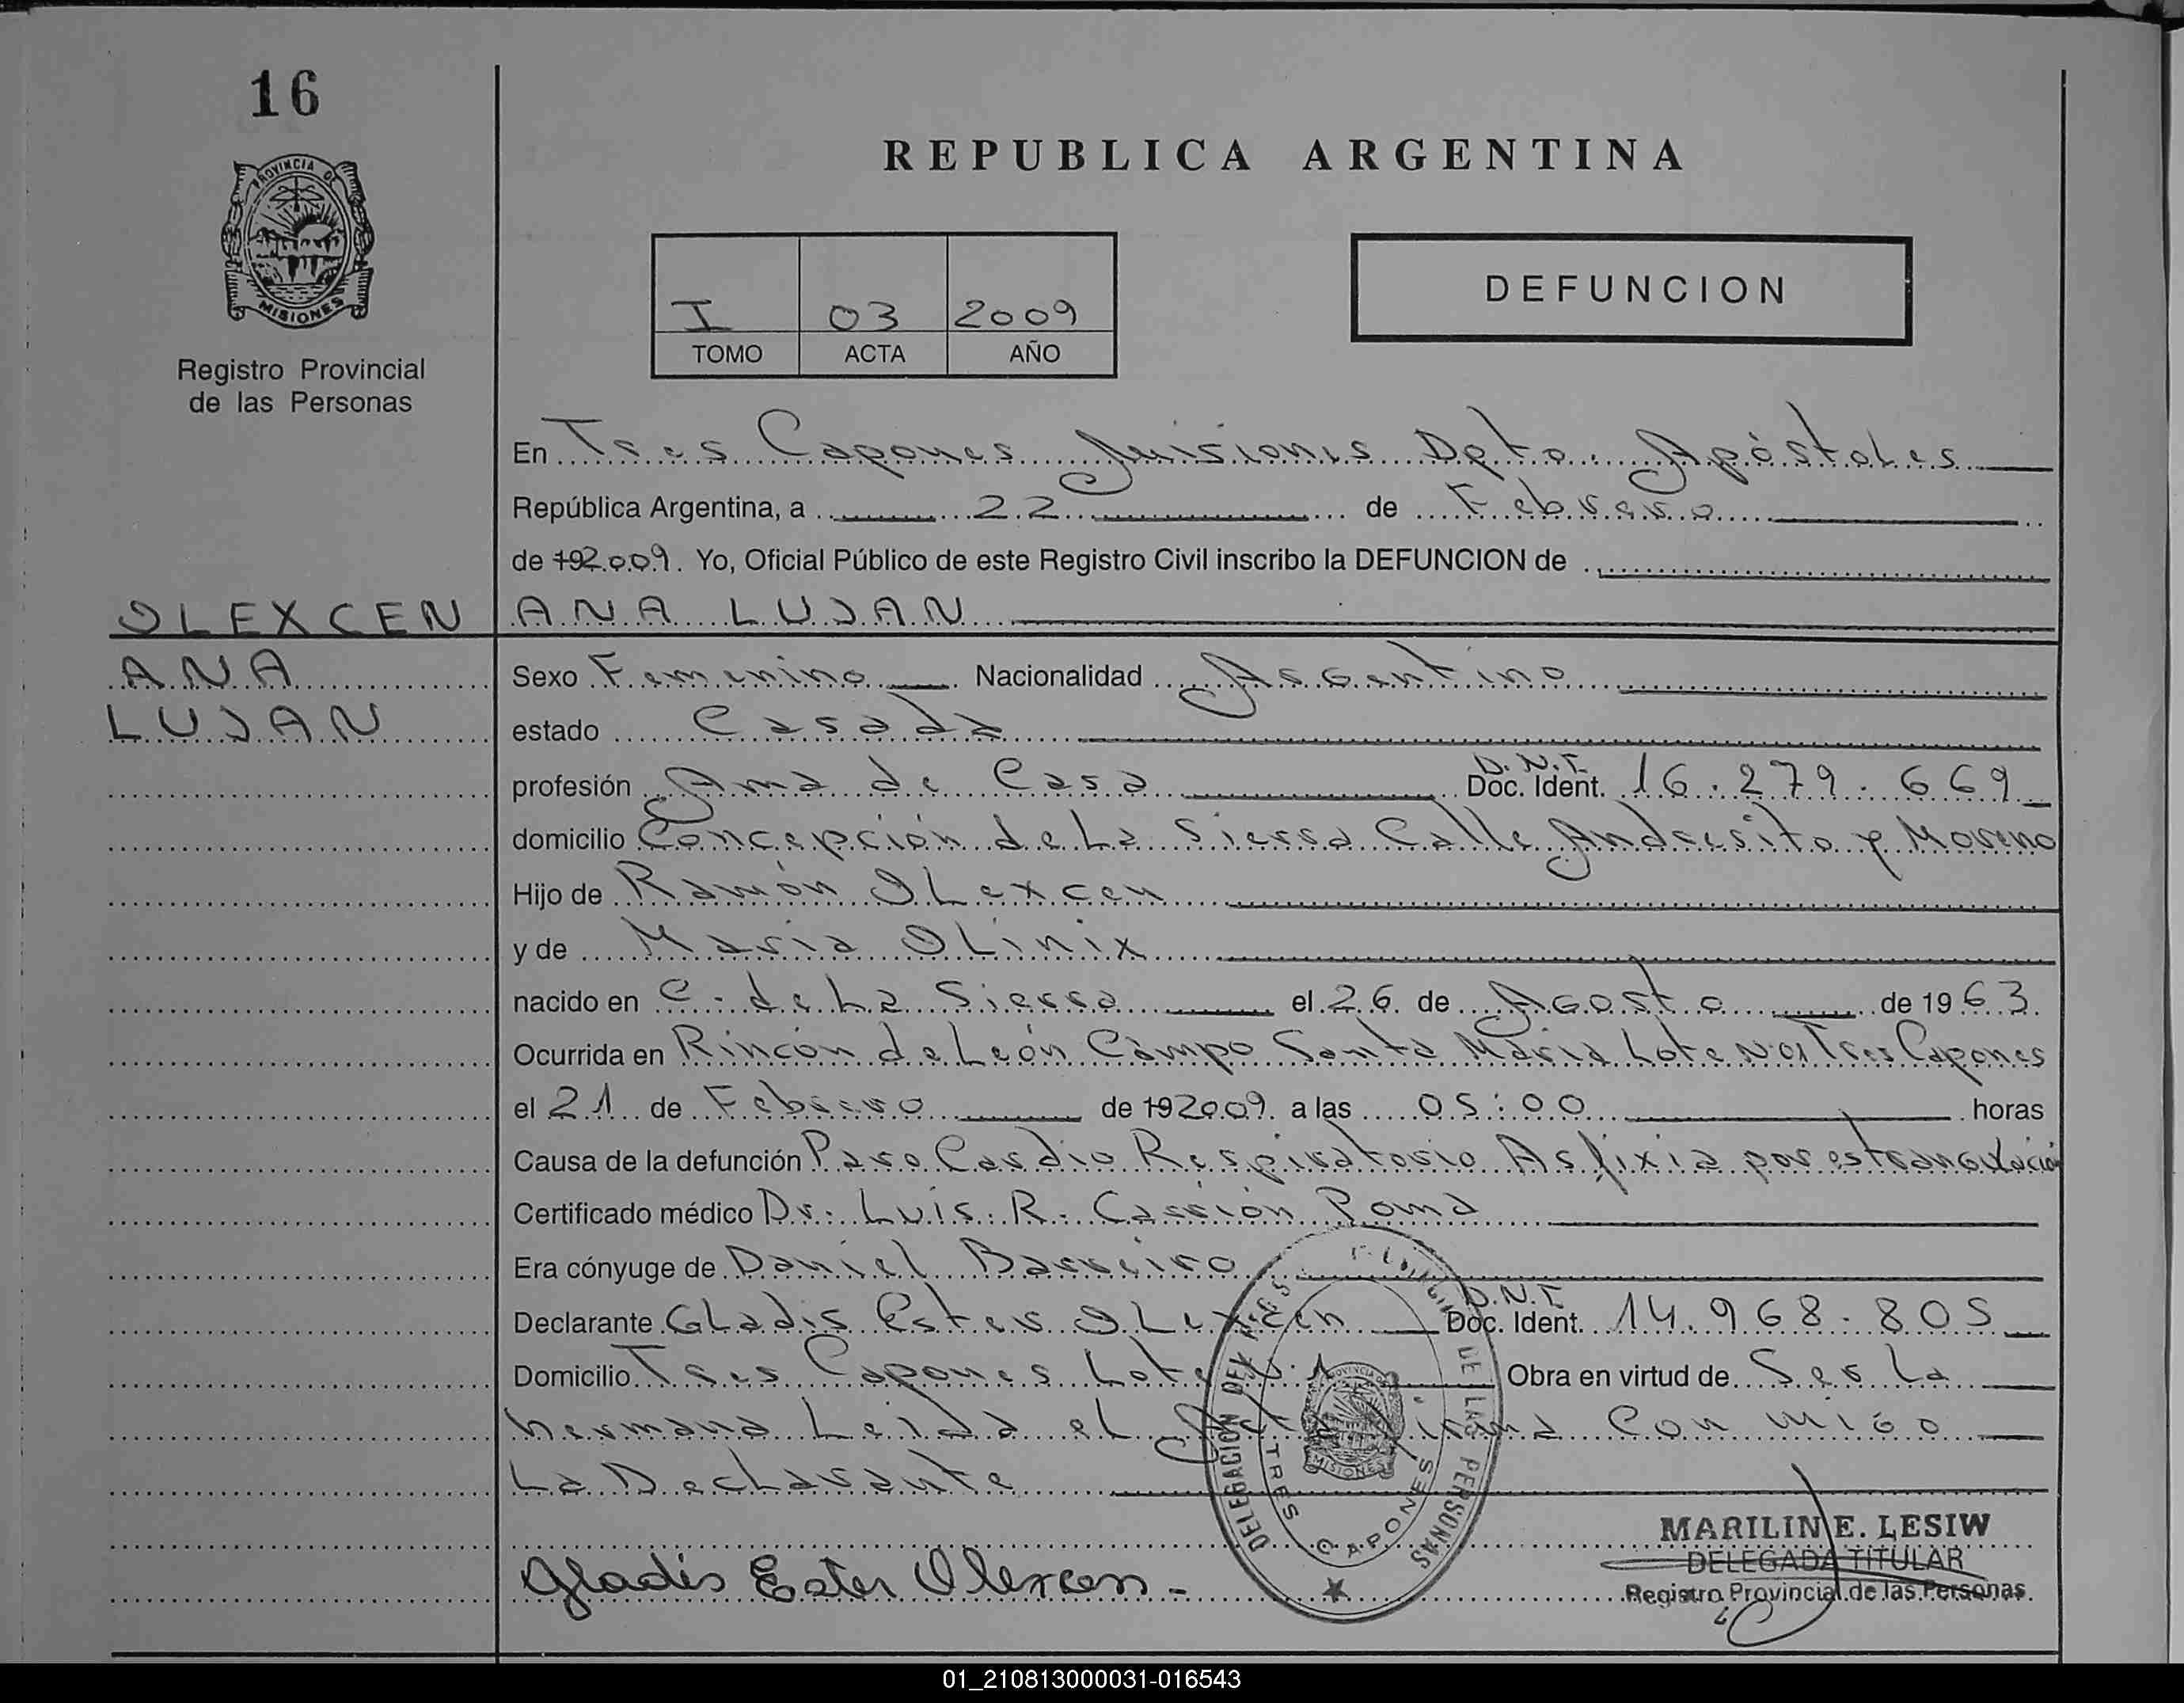 16
PROVINCIA DE
MISIONES
Registro Provincial
de las Personas
REPUBLICA ARGENTINA
I 03 2009
TOMO ACTA AÑO
DEFUNCION
En Tres Capones Misiones Dpto. Apóstoles
República Argentina, a 22 de Febrero
de 192009. Yo, Oficial Público de este Registro Civil inscribo la DEFUNCION de
OLEXCEN ANA LUJAN
ANA
LUJAN
Sexo Femenino Nacionalidad Argentino
estado Casada
profesión Ama de Casa D.N.I. Doc. Ident. 16.279.669
domicilio Concepción de La Sierra Calle Andresito y Moreno
Hijo de Ramón OLexcen
y de Maria OLinix
nacido en C. de La Sierra el 26 de Agosto de 1963.
Ocurrida en Rincón de León Campo Santa Maria Lote Nº1 Tres Capones
el 21 de Febrero de 192009. a las 05:00 horas
Causa de la defunción Paro Cardio Respiratorio Asfixia por estrangulación
Certificado médico Dr. Luis. R. Carrión Poma
Era cónyuge de Daniel Barreiro
Declarante Gladis Ester OLexcen D.N.I. Doc. Ident. 14.968.805
Domicilio Tres Capones Lote Nº 1 Obra en virtud de Ser La
hermana Leida el Acta firma con migo
La Declarante
DELEGACION DEL DE LAS PERSONAS
TRES CAPONES
MISIONES
Gladis Ester Olexcen -
MARILIN E. LESIW
DELEGADA TITULAR
Registro Provincial de las Personas
01_210813000031-016543